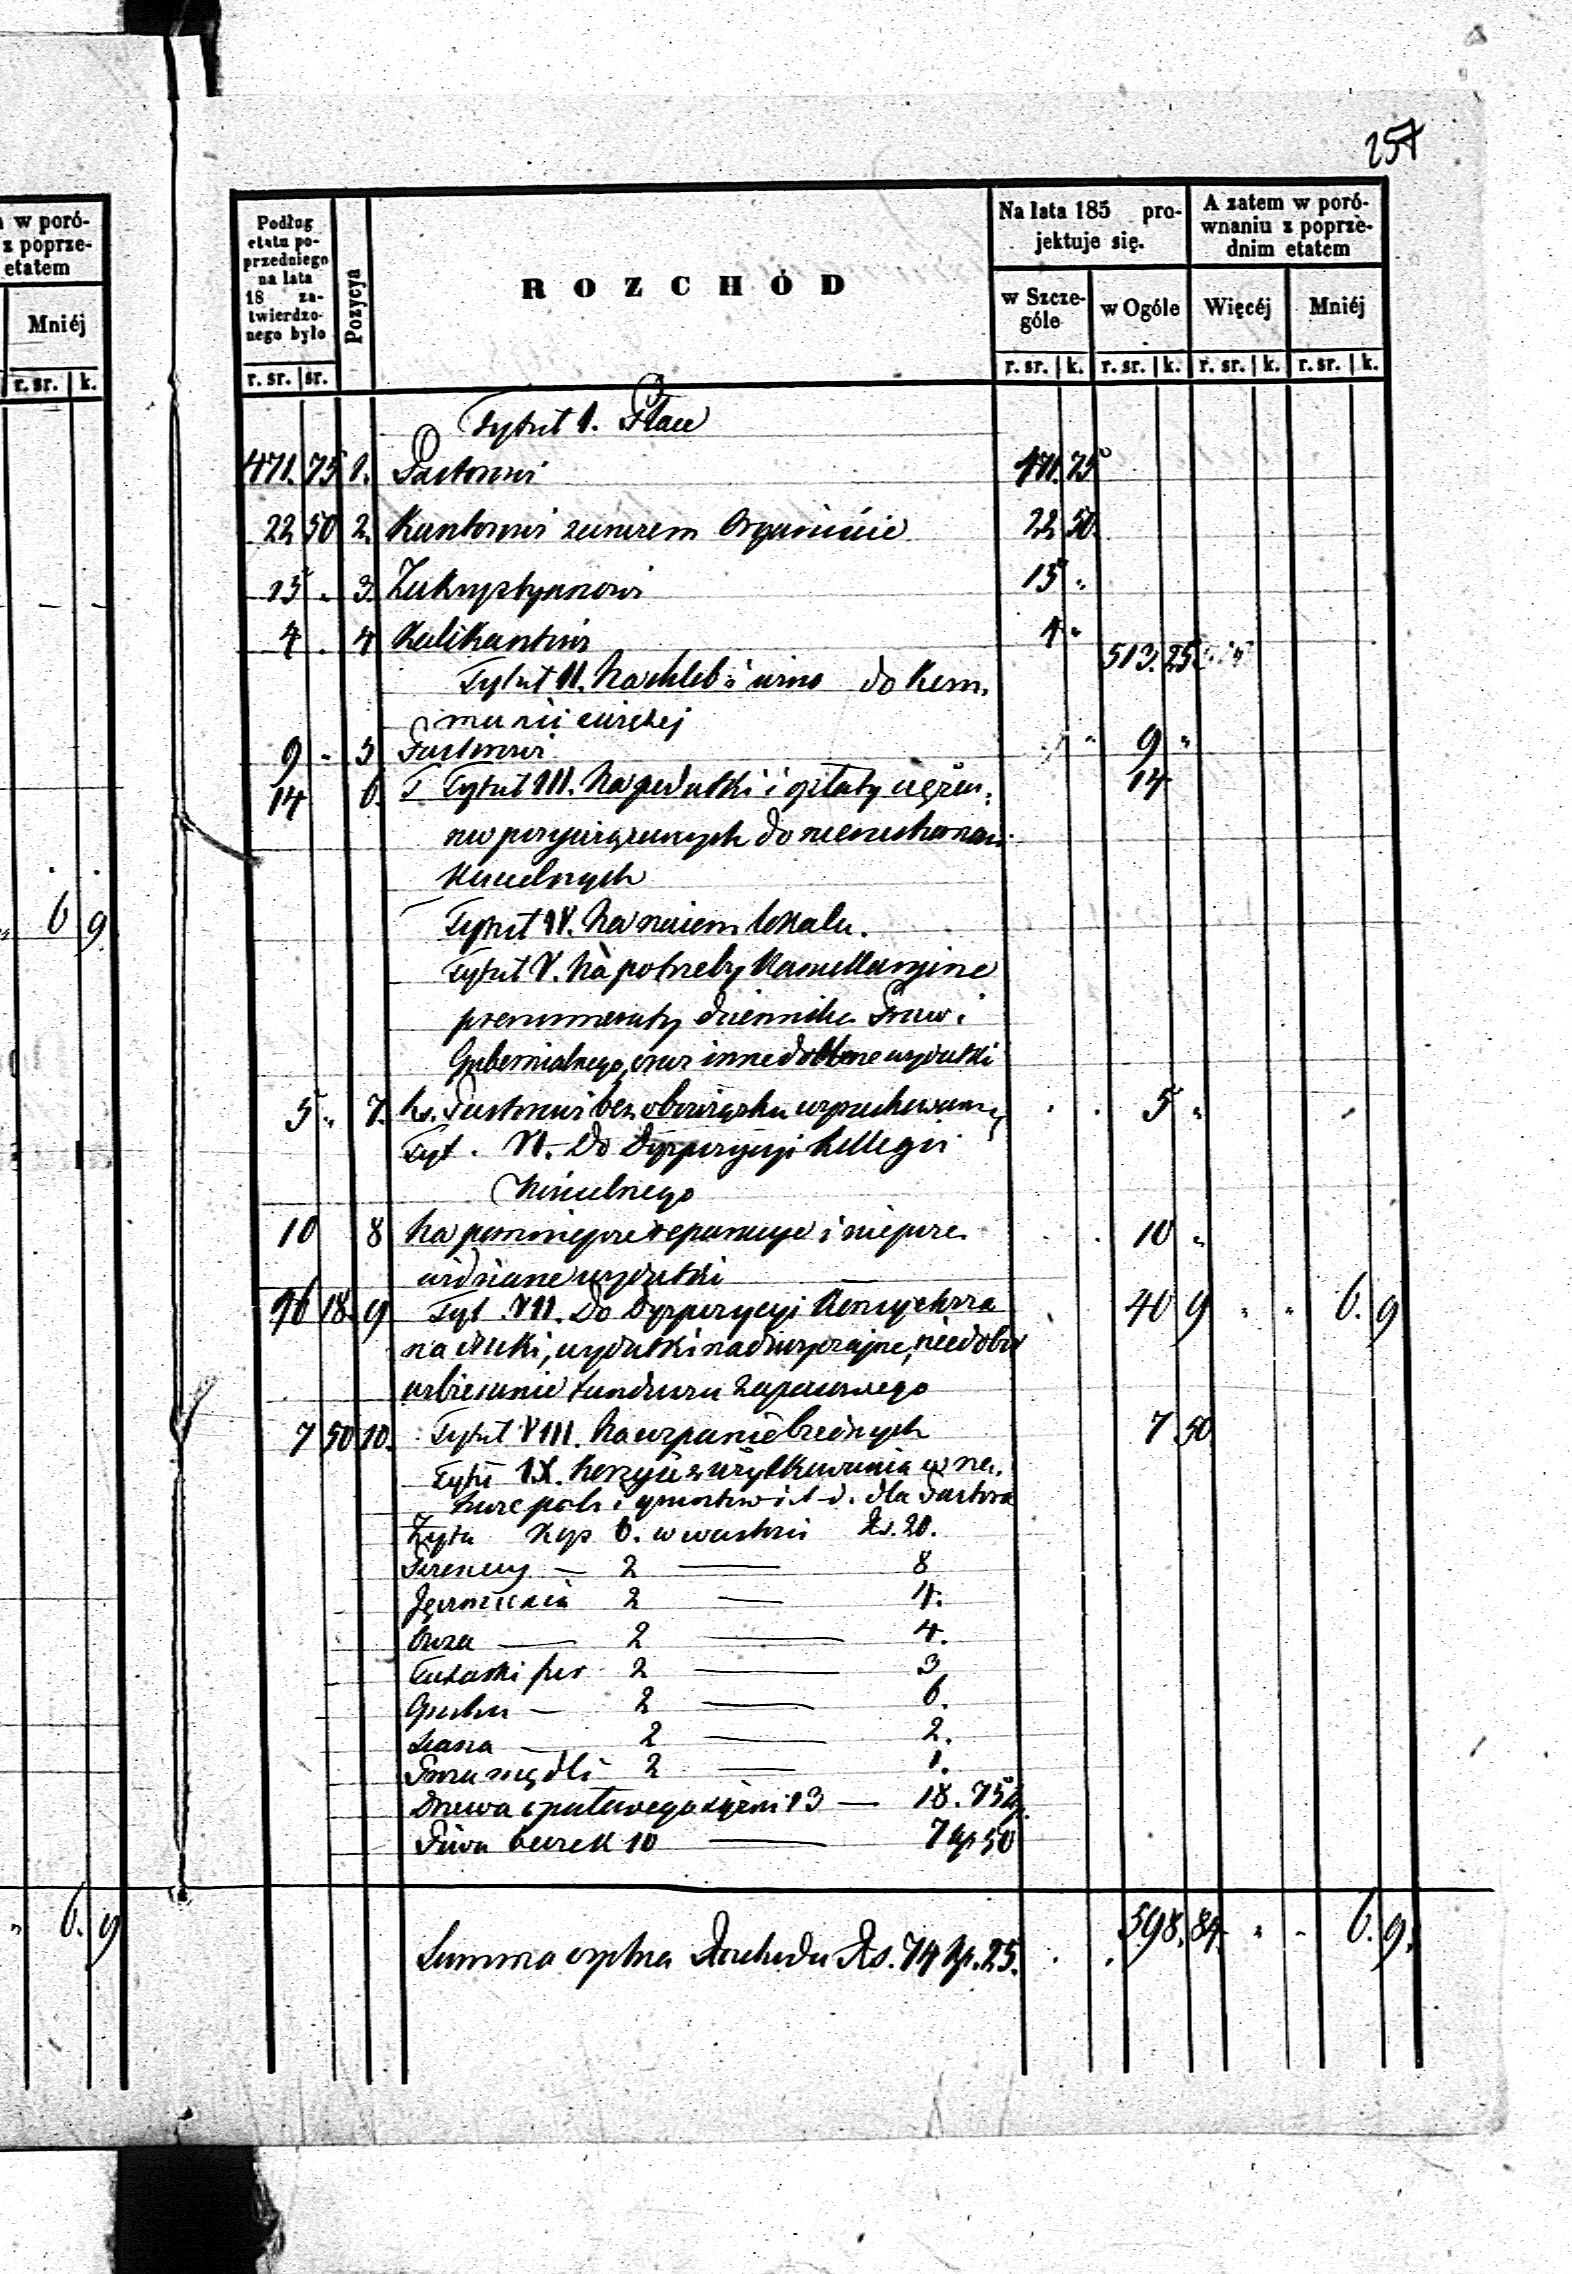 257
w poró-
z poprze-
etatem
Mniéj
r. sr. | k.
6 9
" 6. 9
Podług etatu poprzedniego na lata 18 zatwierdzonego było
r. sr. | sr.
Pozycya
ROZCHÓD
Na lata 185 projektuje się.
w Szczególe
r. sr. | k.
w Ogóle
r. sr. | k.
A zatem w porównaniu z poprzednim etatem
Więcéj
r. sr. | k.
Mniéj
r. sr. | k.
Tytuł I. Płace
471. 75 1. Pastorowi 471. 75
22 50 2. Kantorowi zarazem Organiście 22 50.
15 " 3. Zakrystyanowi 15 "
4 . 4 Kalikantowi 4 " 513. 25
Tytuł II. Na chleb i wino do Kom-
munii świętej
9 " 5 Pastorowi " 9 "
14 6. Tytuł III. Na podatki i opłaty wieczy- 14
przywiązanych do nieruchomości
Kościelnych
Tytuł IV. Na najem lokalu.
Tytuł V. Na potrzeby Kancellaryjne
prenumeraty dziennika Praw i
Gubernialnego, oraz inne drobne wydatki
5 " 7. Ks. Pastorowi bez obowiązku wyrachowania 5 "
Tyt. VI. Do Dyspozycyi Kollegii
Kościelnego
10 8 Na pomniejsze reparacye i nieprze- 10 "
widziane wydatki
46 18. 9 Tyt. VII. Do Dyspozycyi Konsystorza 40 9 " " 6. 9
na druki, wydatki nadzwyczajne, niedobór
uzbieranie funduszu zapasowego
7 50 10. Tytuł VIII. Na wsparcie biednych 7 50
Tytuł IX. Korzyści z użytkowania w na-
turze pola i gruntów i t. d. dla Pastora
Żyta Kop 6. w wartości Rs. 20.
Pszenicy — 2 — 8
Jęczmienia 2 — 4.
Owsa — 2 — 4.
Tatarki 2 — 3
Grochu — 2 — 6.
Siana — 2 — 2.
2 — 1.
Drzewa opałowego sążni 13 — 18. 75
Piwa beczek 10 — 7 kp 50
Summa ogólna Rozchodu Rs. 74 kp. 25. 598. 84. " " 6. 9.